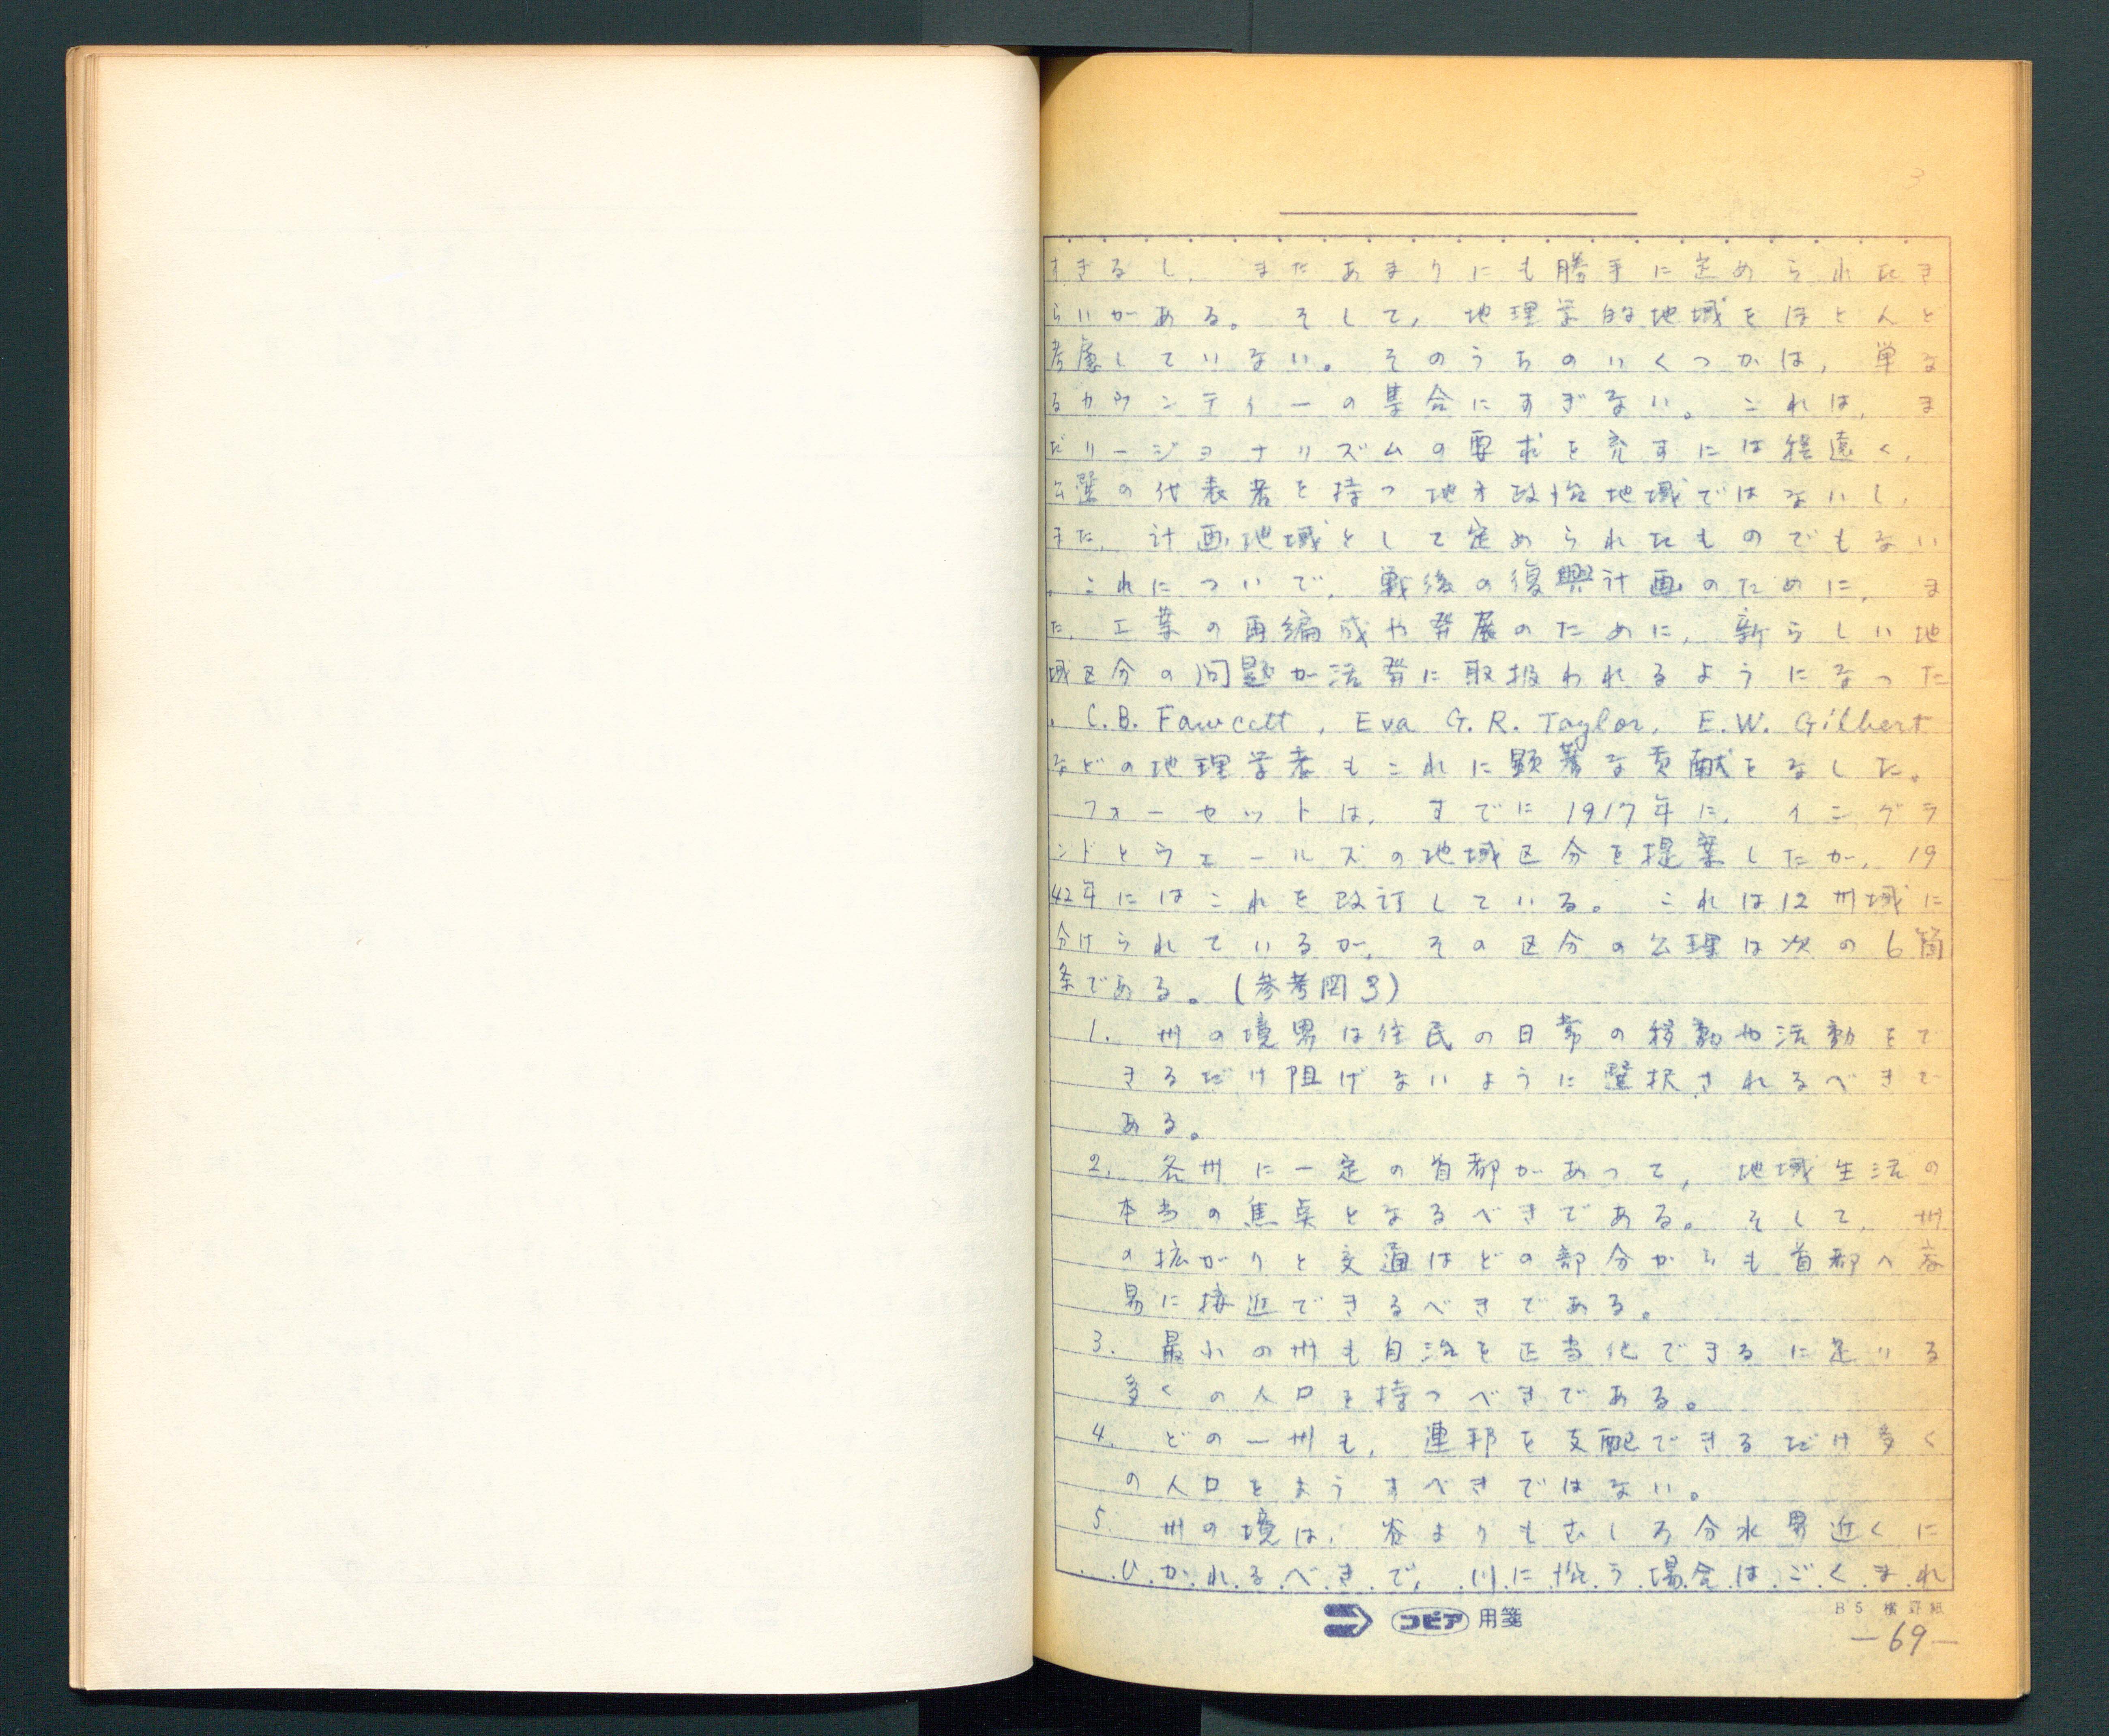 3
すぎるし、またあまりにも勝手に定められたき
らいがある。そして、地理学的地域をほとんど
考慮していない。そのうちのいくつかは、単な
るカウンティーの集合にすぎない。これは、ま
だリージョナリズムの要求を充すには程遠く、
公選の代表者を持つ地方政治地域ではないし、
また、計画地域として定められたものでもない
。これについで、戦後の復興計画のために、ま
た、工業の再編成や発展のために、新らしい地
域区分の問題が活発に取扱われるようになった
。C.B. Fawcett, Eva G.R. Taylor, E.W. Gilbert
などの地理学者もこれに顕著な貢献をなした。
フォーセットは、すでに1917年に、イングラ
ンドとウェールズの地域区分を提案したが、19
42年にはこれを改訂している。これは12州域に
分けられているが、その区分の公理は次の6箇
条である。(参考図3)
1. 州の境界は住民の日常の移動や活動をで
きるだけ阻げないように選択されるべきで
ある。
2. 各州に一定の首都があって、地域生活の
本当の焦点となるべきである。そして、州
の拡がりと交通はどの部分からも首都へ容
易に接近できるべきである。
3. 最小の州も自治を正当化できるに足いる
多くの人口を持つべきである。
4. どの一州も、連邦を支配できるだけ多く
の人口をようすべきではない。
5. 州の境は、谷よりもむしろ分水界近くに
ひかれるべきで、川に沿う場合はごくまれ
コピア 用箋
B5 横罫紙
—69—